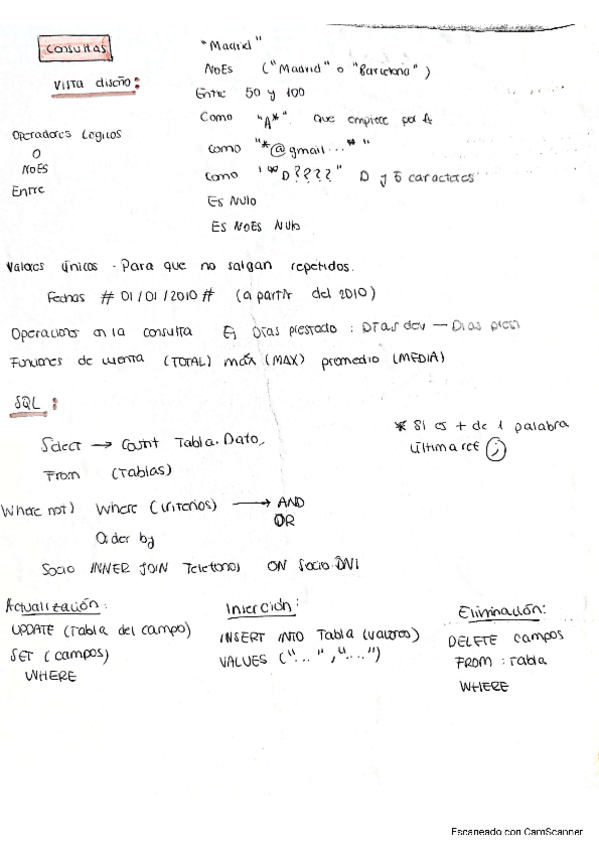 Consultas
Vista diseño:
"Madrid"
NoEs ("Madrid" o "Barcelona")
Entre 50 y 100
Como "A*" que empiece por A
Como "*@gmail...*"
Como "D????" D y 5 caracteres
Es Nulo
Es NoEs Nulo
Operadores Logicos
O
NoEs
Entre
Valores únicos - Para que no salgan repetidos.
Fechas #01/01/2010# (a partir del 2010)
Operaciones en la consulta Ej Dias prestado : Dias dev — Dias
Funciones de cuenta (TOTAL) máx (MAX) promedio (MEDIA)
SQL:
Select → Tabla.Dato,
From (Tablas)
Where not) Where (criterios) → AND
OR
Order by
Socio INNER JOIN Telefono ON Socio.DNI
* Si es + de 1 palabra
ultima ;
Actualización:
UPDATE (Tabla del campo)
SET (campos)
WHERE
Inserción:
INSERT INTO Tabla (valores)
VALUES ("...","...")
Eliminación:
DELETE campos
FROM : tabla
WHERE
Escaneado con CamScanner